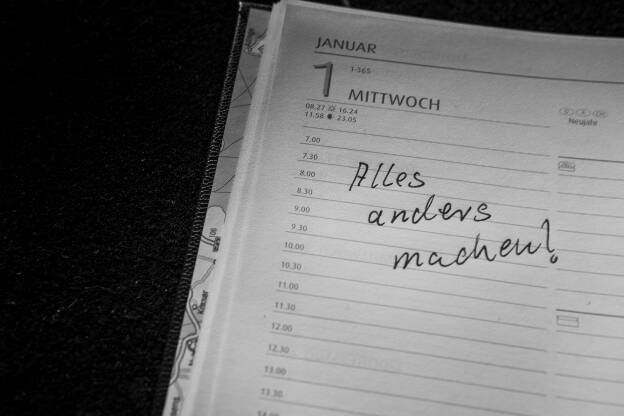 JANUAR
1
1-365
MITTWOCH
08.27 16.24
11.58 23.05
Neujahr
7.00
7.30
8.00
8.30
9.00
9.30
10.00
10.30
11.00
11.30
12.00
12.30
13.00
13.30
14.00
Alles
anders
machen!